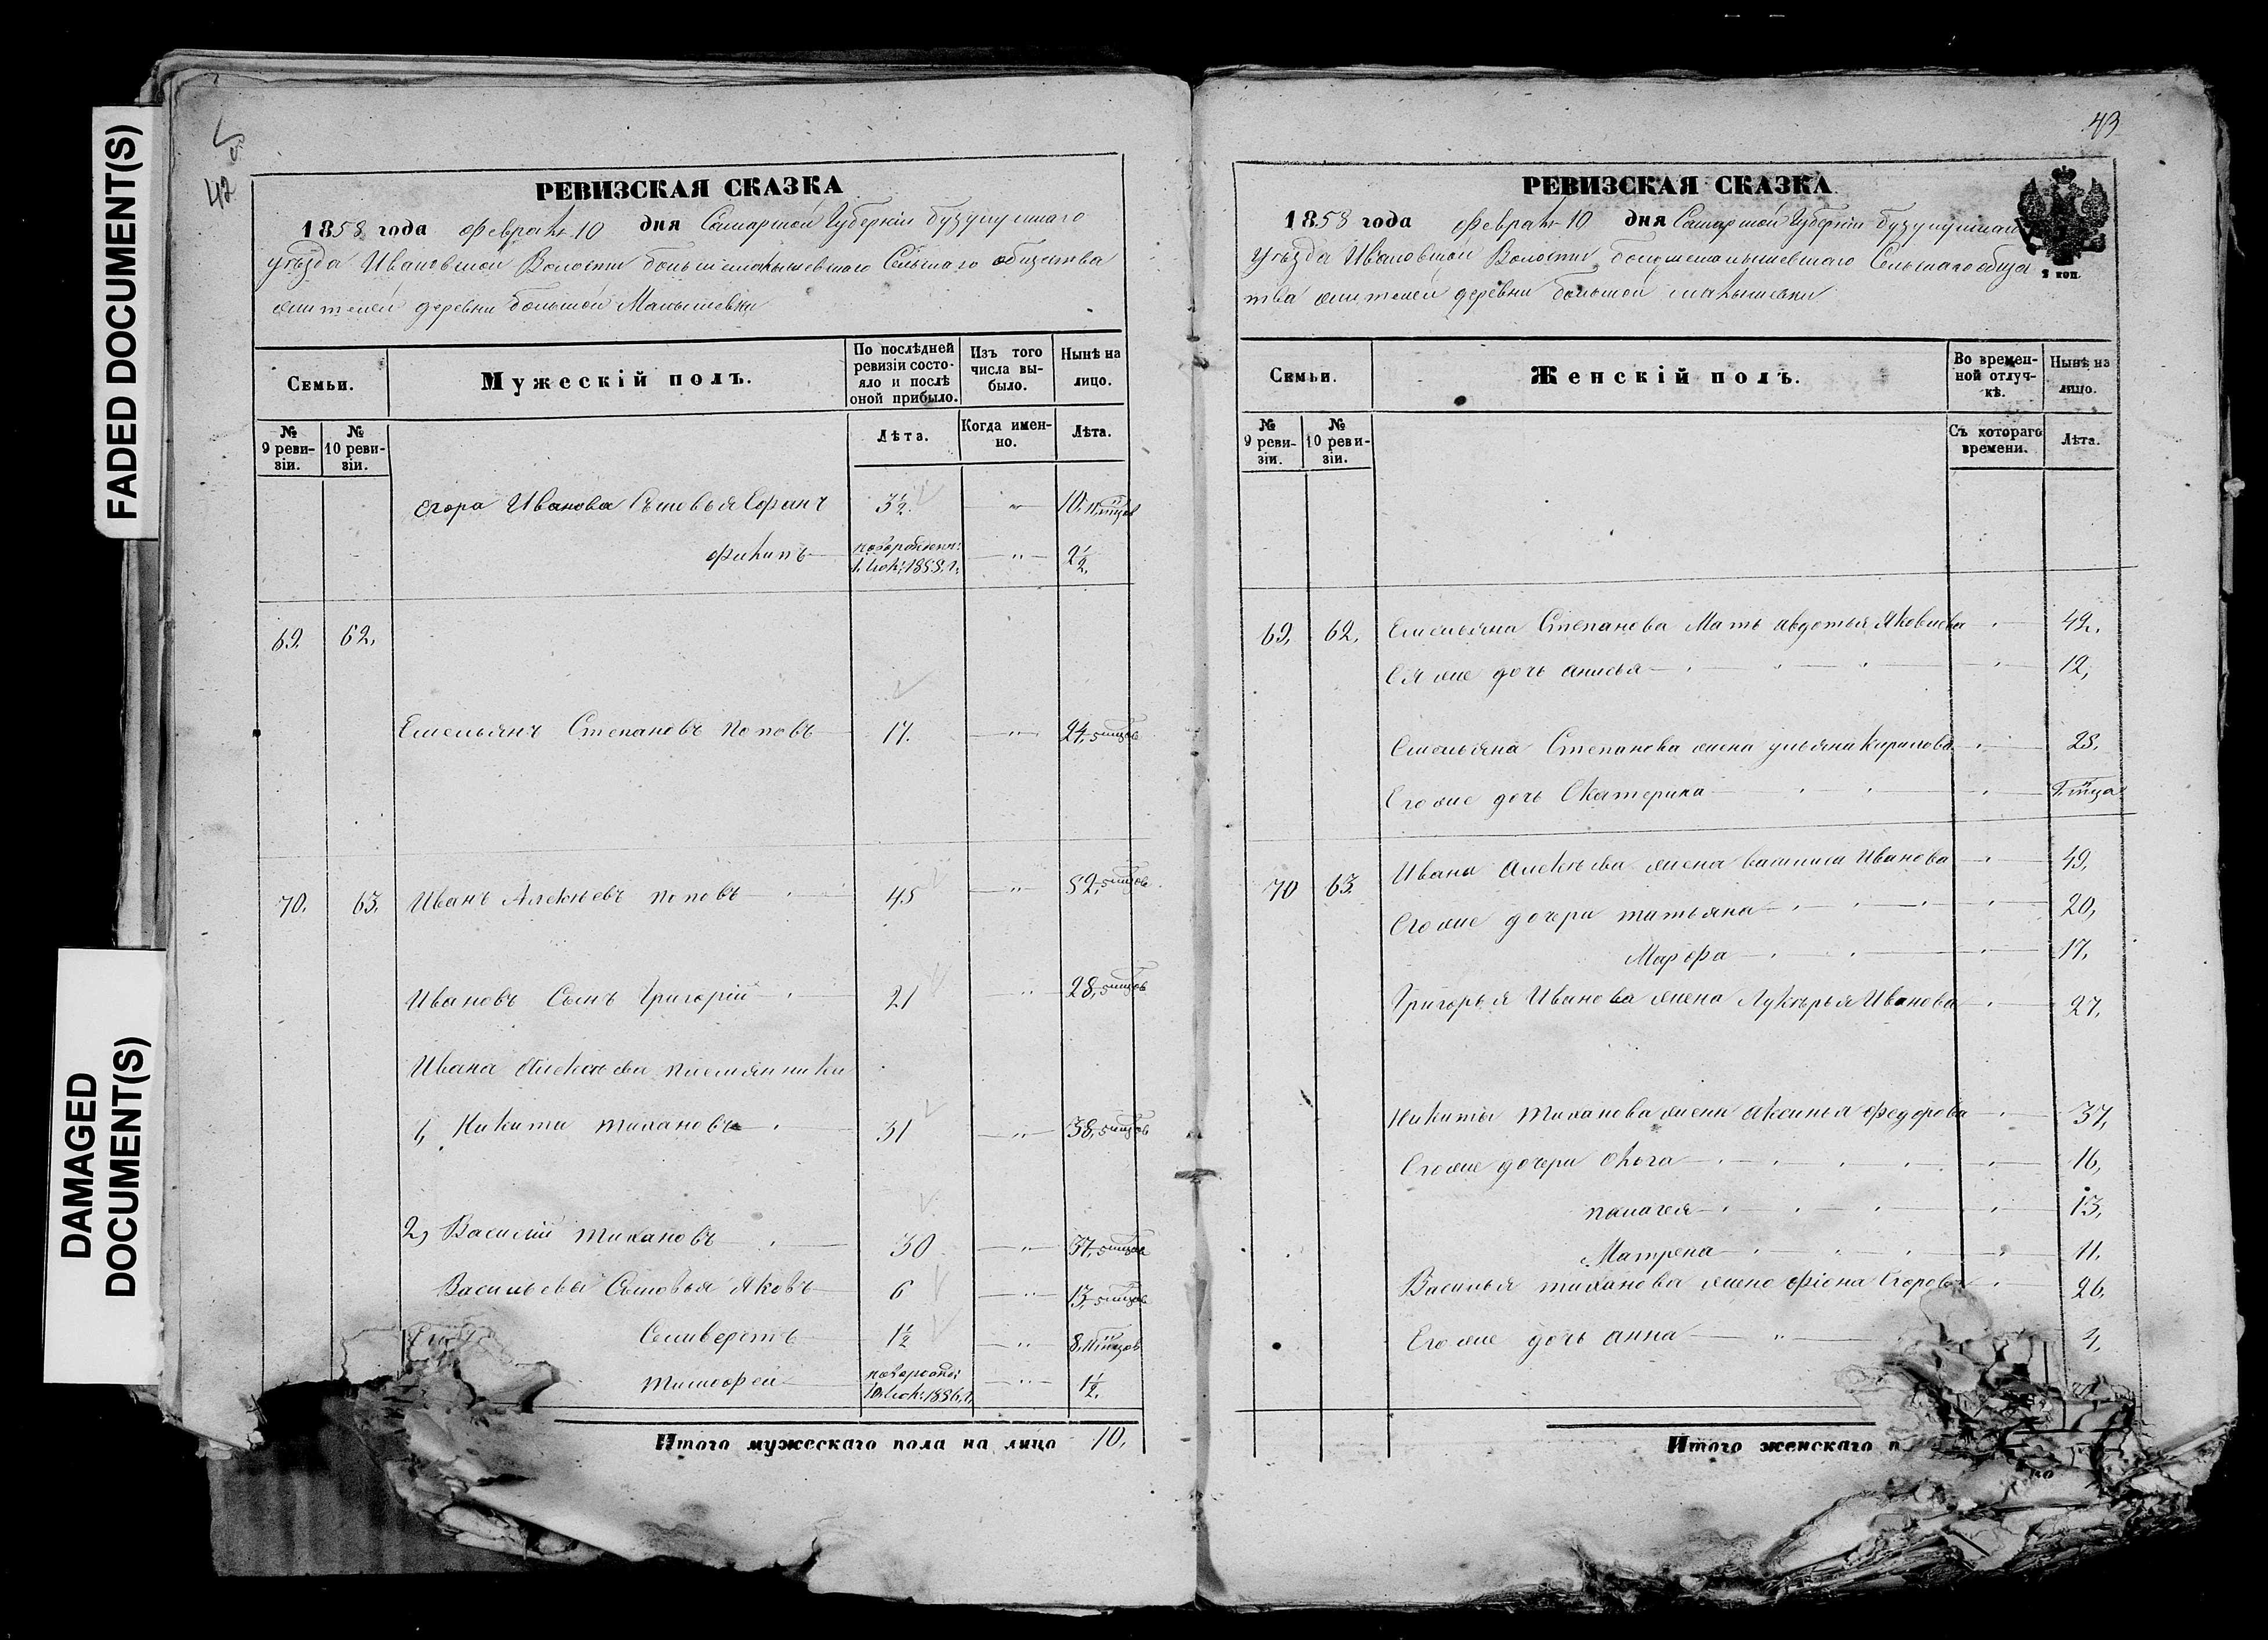 FADED DOCUMENT(S)
DAMAGED
DOCUMENT(S)
42
РЕВИЗСКАЯ СКАЗКА
1858 года Февраля 10 дня Самарской Губернии бузулукскаго
уѣзда Ивановской Волости большемалышевскаго Сельскаго общества
жителей деревни большой Малышевки
Семьи.
Мужескій полъ.
По послѣдней ревизіи состояло и послѣ оной прибыло.
Изъ того числа выбыло.
Нынѣ на лицо.
№ 9 ревизіи.
№ 10 ревизіи.
Лѣта.
Когда именно.
Лѣта.
Егора Иванова Сыновья 3½ " 10,
Филипъ " 2½
69. 62.
Емельянъ Степановъ Поповъ 17. " 24, 5 мцов
70. 63. Иванъ Алексѣевъ поповъ 45 " 52, 5 мцов
Ивановъ Сынъ Григорій 21 " 28, 5 мцов
Ивана Алексѣева племянники
1, Никита тихановъ 31 " 38, 5 мцов
2, Василій тихановъ 30 " 37, 5 мцов
Васильевы Сыновья Яковъ 6 " 13, 5 мцов
Селиверстъ 1½ " 8, 11 мцов
тимофей " 1½
Итого мужескаго пола на лицо 10,
43
РЕВИЗСКАЯ СКАЗКА
1858 года Февраля 10 дня Самарской Губернии бузулукскаго
уѣзда Ивановской Волости большемалышевскаго Сельскаго общес
тва жителей деревни большой малышевки
2 коп.
Семьи.
Женскій полъ.
Во временной отлучкѣ.
Нынѣ на лицо.
№ 9 ревизіи.
№ 10 ревизіи.
Съ котораго времени.
Лѣта.
69, 62, Емельяна Степанова Мать авдотья Яковлева 42,
Ея же дочь анисья 12,
Емельяна Степанова жена ульяна Карпова 28,
Его же дочь Екатерина
70 63 Ивана Алексѣева жена василиса Иванова 49,
Его же дочери татьяна 20,
Марфа 17,
Григорья Иванова жена Лукерья Иванова 27,
Никиты тиханова жена аксинья федорова 37,
Его же дочери Олга 16,
палагея 13,
Матрена 11,
Василья тиханова жена фіона Егорова 26,
Его же дочь анна 4,
Итого женскаго п